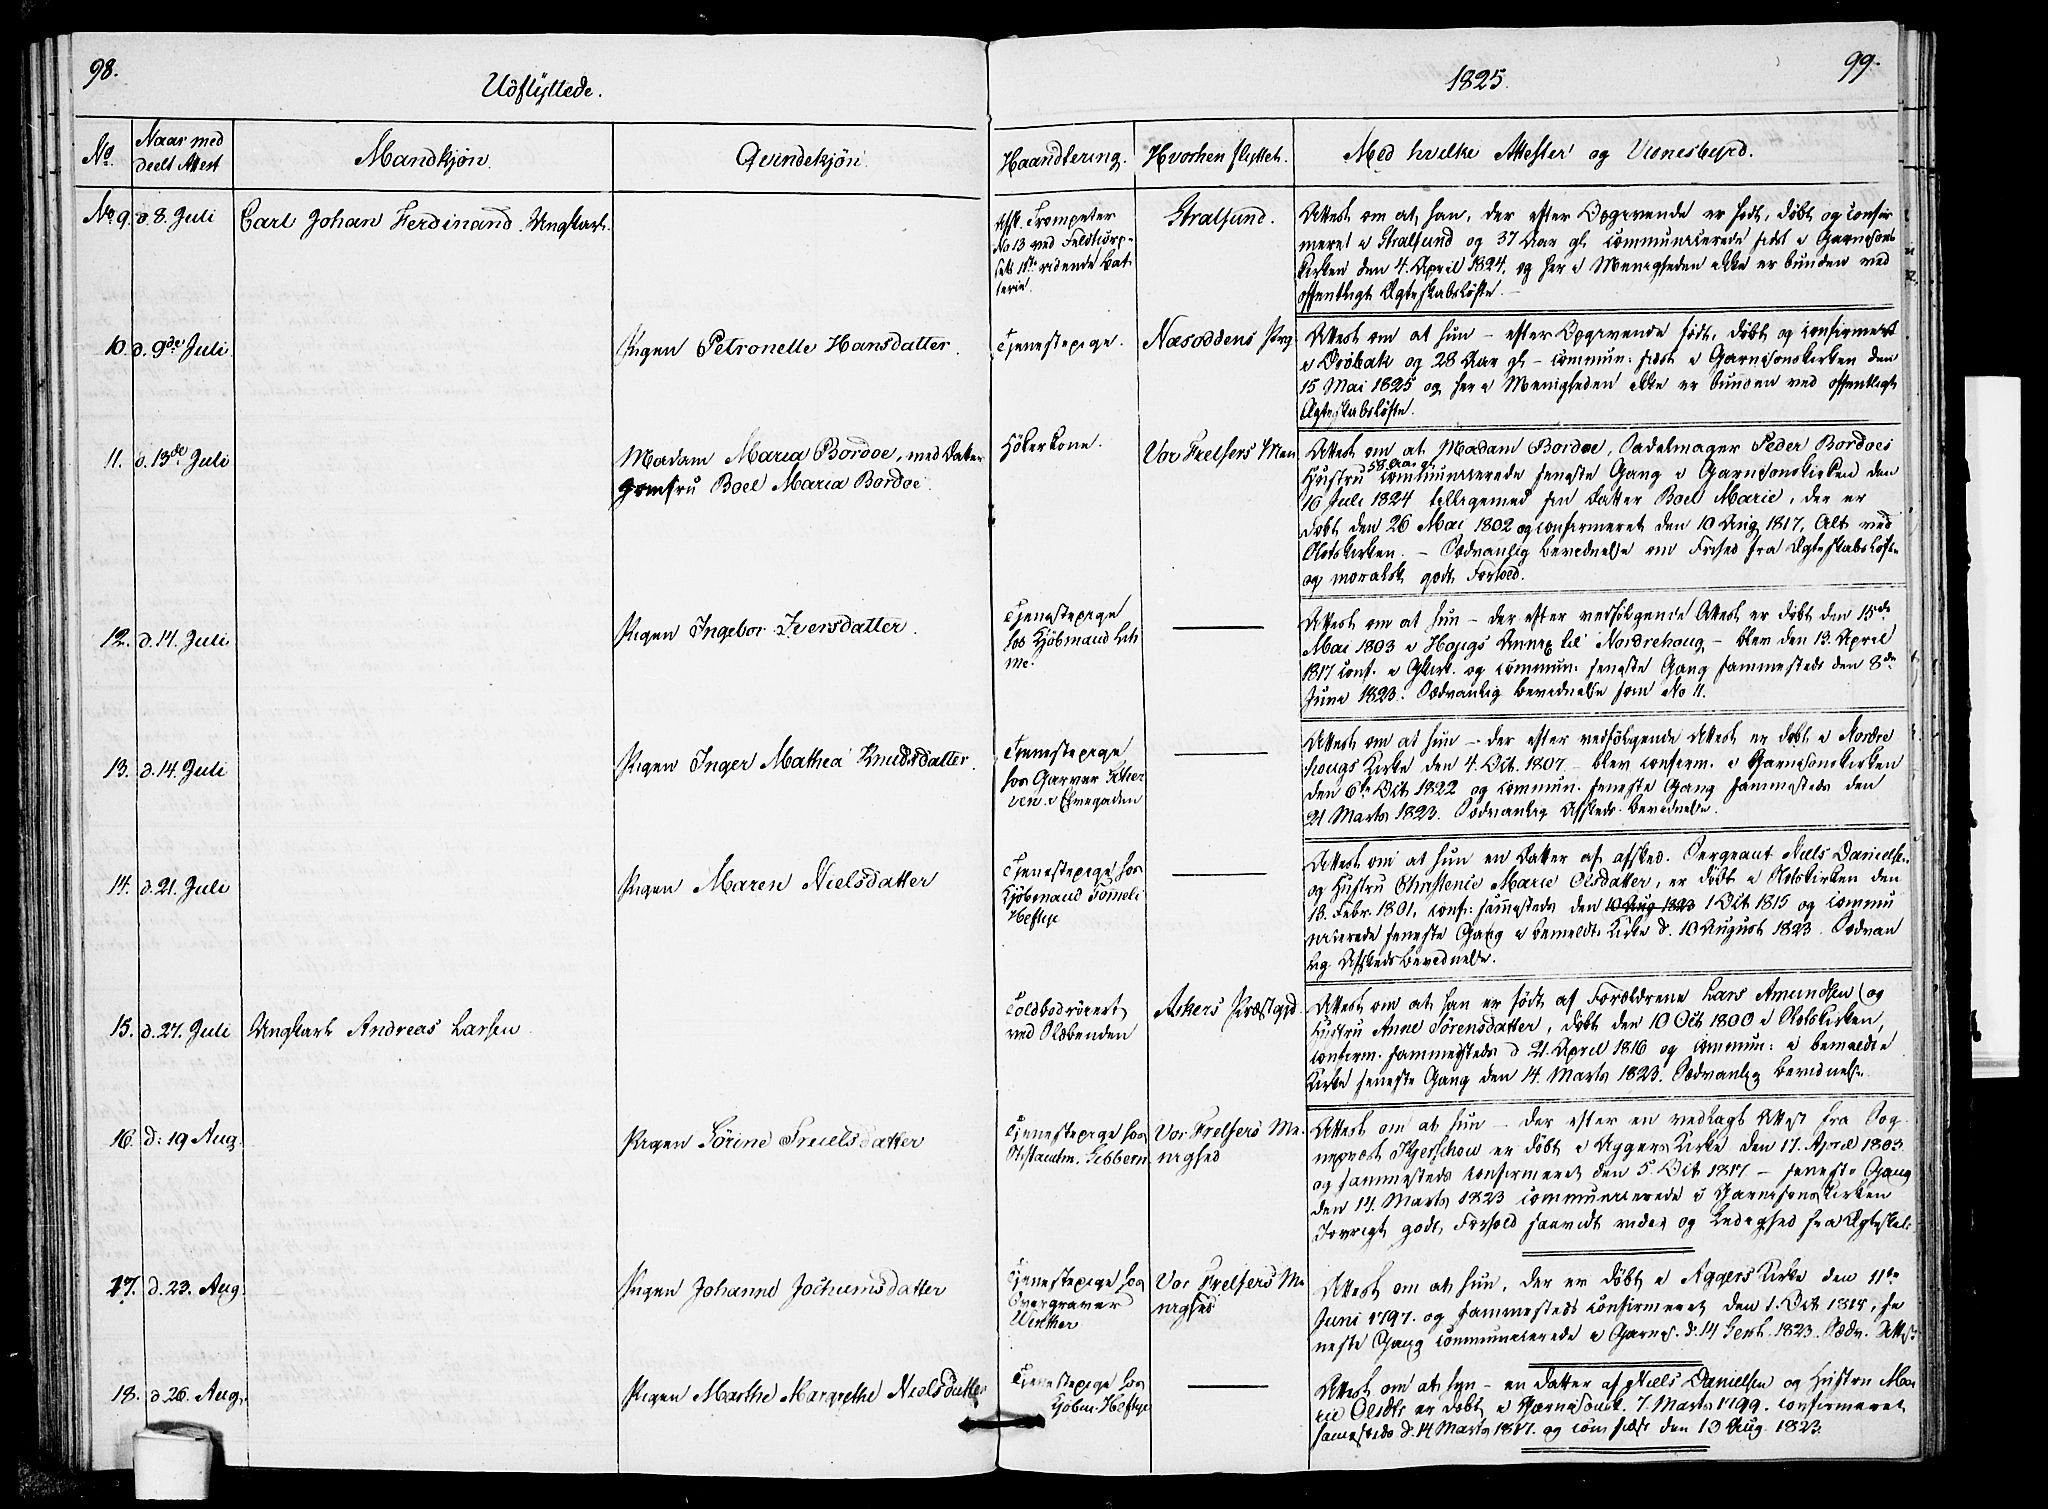 98.
Udflyttede.
1825.
99.
No.
Naar med
deelt Attest
Mandkjøn.
Qvindekjøn.
Haandtering.
Hvorhen flyttet.
Med hvilke Attester og Vidnesbyrd.
No 9. d. 8. Juli
Carl Johan Ferdinand. Ungkarl.
Afsk. Trompeter
No 13 ved Feldtcorp-
sets 1ste ridende Bat
terie.
Stralsund.
Attest om at han, der efter Opgivende er født, døbt og confir
meret i Stralsund og 37 Aar gl. communicerede sidst i Garnisons
Kirken den 4. April 1824, og her i Menigheden ikke er bunden ved
offentligt Ægteskabsløfte. —
10. d. 9de Juli
Pigen Petronelle Hansdatter.
Tjenestepige.
Næsoddens Prg
Attest om at hun – efter Opgivende født, døbt og confirmert
i Drøbak og 28 Aar gl – commun: sidst i Garnisonskirken den
15 Mai 1825 og her i Menigheden ikke er bunden ved offentligt
Ægteskabsløfte.
11. d. 13de Juli
Madam Maria Bordoe, med Datter
Jomfru Boel Maria Bordoe.
Høkerkone.
Vor Frelsers Men
Attest om at Madam Bordoe, Sadelmager Peder Bordoes
Hustru 58 Aar gl communicerede seneste Gang i Garnisonskirken den
16 Juli 1824 tilligemed sin Datter Boel Marie, der er
døbt den 26 Mai 1802 og confirmeret den 10 Aug 1817, Alt ved
Slotskirken. – Sædvanlig Bevidnelse om Frihed fra Ægteskabsløfte
og moralsk godt Forhold.
12. d. 14. Juli
Pigen Ingebor Iversdatter.
Tjenestepige
hos Kjøbmand
me.
Attest om at hun – der efter vedfølgende Attest er døbt den 15de
Mai 1803 i Hougs Annex til Nordrehoug – blev den 13. April
1817 conf. i GKirk. og commun: seneste Gang sammesteds den 8de
Juni 1823. Sædvanlig Bevidnelse som No 11.
13. d. 14. Juli
Pigen Inger Mathea Knudsdatter.
Tjenestepige
hos Garver
ven i Elvegaden
Attest om at hun – der efter vedfølgende Attest er døbt i Nordre
hougs Kirke den 4. Oct. 1807 – blev confirm. i Garnisonskirken
den 6te Oct 1822 og commun. seneste Gang sammesteds den
21 Marts 1823. Sædvanlig Afskeds-Bevidnelse.
14. d. 21. Juli
Pigen Maren Nielsdatter
Tjenestepige hos
Kjøbmand Tømmeli
Heftye
Attest om at hun en Datter af afsked. Sergeant Niels Danielsen
og Hustru Christenie Marie Olsdatter, er døbt i Slotskirken den
18. Febr. 1801, conf: sammesteds den 10 Aug 1823 1 Oct 1815 og commu
nicerede seneste Gang i bemeldte Kirke d. 10 August 1823. Sædvan
lig Afskedsbevidnelse.
15. d. 27. Juli
Ungkarl Andreas Larsen.
Toldbodrøiert
ved
Askers Præstgjd.
Attest om at han er født af Forældrene Lars Amundsen og
Hustru Anne Sørensdatter, døbt den 10 Oct 1800 i Slotskirken,
confirm. sammesteds d 21. April 1816 og commun: i bemeldte
Kirke seneste Gang den 14. Marts 1823. Sædvanlig Bevidnelse.
16. d: 19 Aug.
Pigen Sørine Truelsdatter
Tjenestepige hos
Sibbern
Vor Frelsers Me-
nighed
Attest om at hun – der efter en vedlagt Attest fra Sog-
nepræst Kjerschow er døbt i Aggers Kirke den 17. April 1803
og sammesteds confirmeret den 5. Oct 1817 – seneste Gang
den 14. Marts 1823 communicerede i Garnisonskirken
Iøvrigt godt Forhold saavidt vides og Ledighed fra Ægteskab:
17. d. 23. Aug.
Pigen Johanne Jochumsdatter
Tjenestepige hos
Overgraver
Winther
Vor Frelsers Me
nighed
Attest om at hun, der er døbt i Aggers Kirke den 11te
Juni 1797. og sammesteds confirmeret den 1. Oct 1815, se
neste Gang communicerede i Garnis. d. 14 Sept. 1823. Sædv. Attest
18. d. 26. Aug.
Pigen Marthe Margrethe Nielsdatter
Tjenestepige hos
Kjøbm. Heftye
Attest om at hun – en Datter af Niels Danielsen og Hustru Ma
rie Olsdtr er døbt i Garnisonsk. 7. Marts 1799. confirmeret
sammesteds d. 14 Marts 1817. og com sidst den 13 Aug 1823.